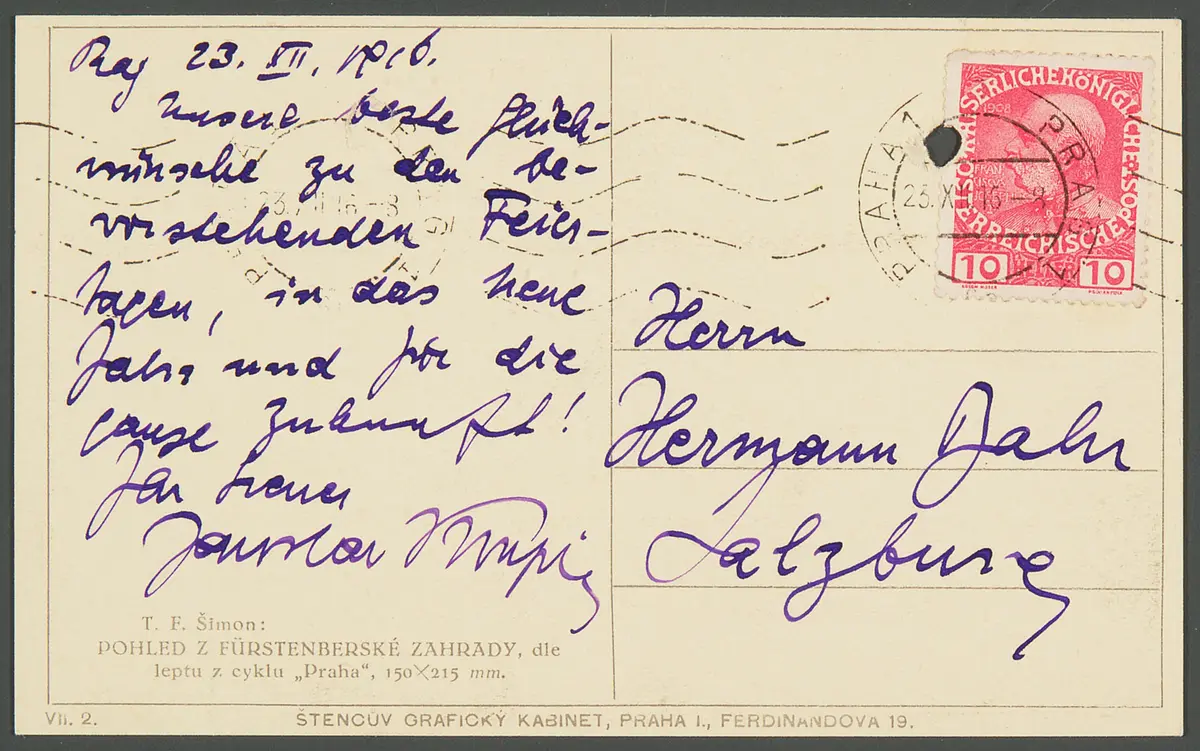 Prag 23. XII. 1916.
Unsere beste Glück-
wünsche zu den be-
vorstehenden Feier-
tagen, in das neue
Jahr und für die
ganze Zukunft!
Ihr treuer
Jaroslav Kvapil
T. F. Šimon:
POHLED Z FÜRSTENBERSKÉ ZAHRADY, dle
leptu z cyklu „Praha“, 150×215 mm.
VII. 2.
ŠTENCŮV GRAFICKÝ KABINET, PRAHA I., FERDINANDOVA 19.
KAISERLICHE KÖNIGLICHE
POST
ÖSTERREICHISCHE
1908
10 10
PRAHA 1 PRAG
23.XII.16–8
Herrn
Hermann Bahr
Salzburg